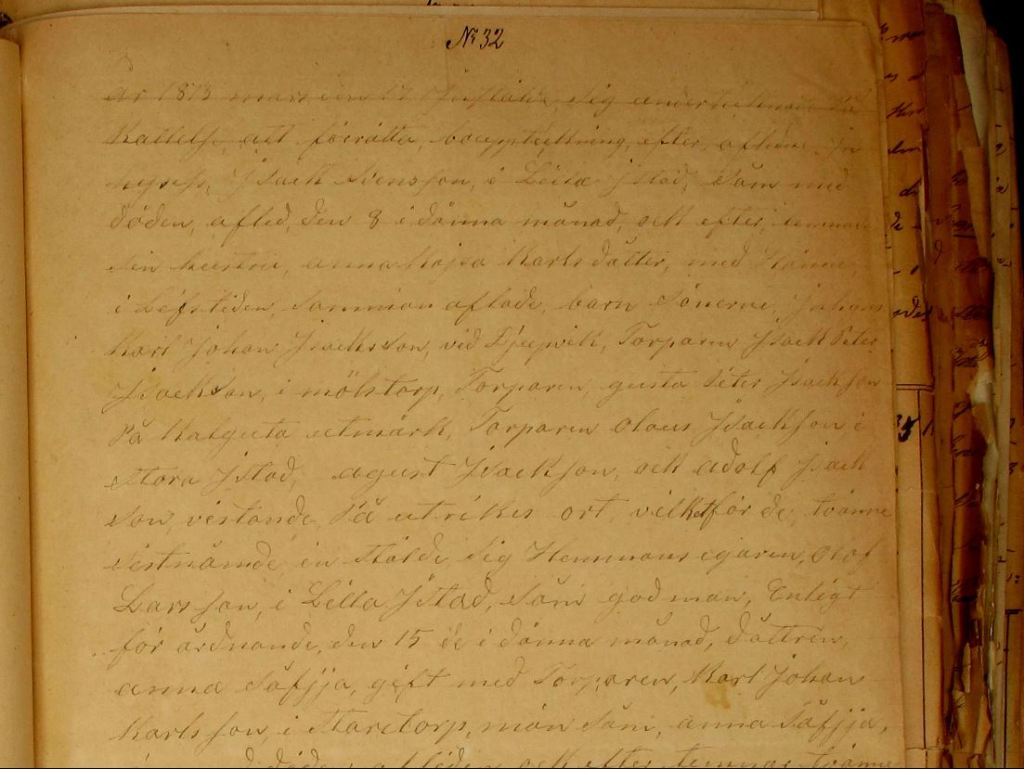 No 32
År 1873 mars den 17 Instälde sig undertecknade på
Kallelse att förrätta bouppteckning, efter, aflidne In
hyses, Isack Svensson, i Lilla Istad, Som med
döden, afled, den 8 i dänna månad, och efter, lemnat
sin hustru, anna Kajsa Karls dotter, med Hänne
i Lifstiden Samman aflade, barn Sönerne, Johans
Karl Johan Isacksson, vid Djupvik, Torparen Isack Peter
Isackson, i mölstorp, Torparen, gusta Peter Isackson
På Kalguta utmark, Torparen Olaus Isackson i
Stora Istad, agust Isackson, och adolf Isack
Son, vistande, På utrikes ort, vilket för de, tvänne
Sistnämde, in stälde sig Hemmans egaren, Olof
Larsson, i Lilla Istad, Som god man, Enligt
för ordnande, den 15 de i dänna månad, dottren,
anna Såfija, gift med Torparen, Karl Johan
Karlsson, i man Som, anna Såfija,
döden afliden och efter lemnat tvänne